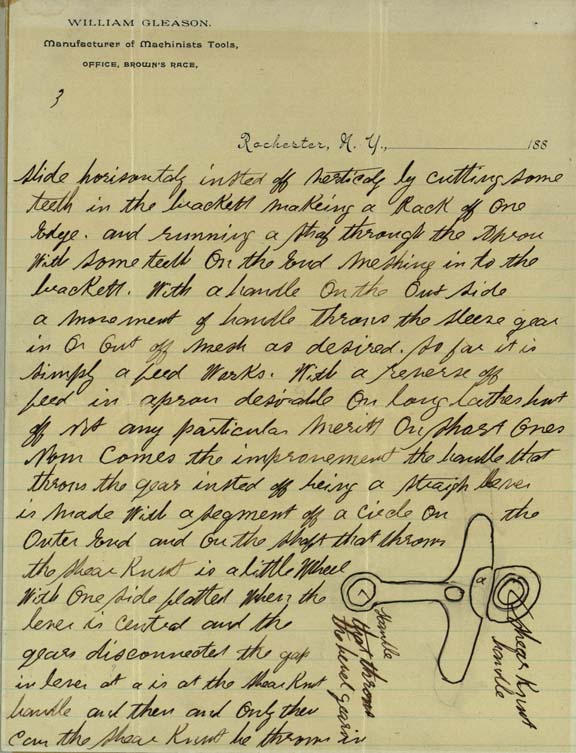 WILLIAM GLEASON.
Manufacturer of Machinists Tools,
OFFICE, BROWN'S RACE,
3
Rochester, N. Y., 188
slide horisontaly insted off verticaly by cutting some
teeth in the brackett makeing a Rack of one
Edge. and running a shaf through the Apron
With some teeth On the End meshing in to the
brackett. With a handle On the Out side
a movement of handle throws the sleeze gear
in Or Out off mesh as desired. So far it is
simply a feed Works. With a reverse off
feed in apron desirable On long lathes but
off not any particular merits On short Ones
Now Comes the improvement the handle that
throws the gear insted off being a straigh lever
is made With a segment off a circle On the
Outer End and on the shaft that throws
the shear Knut is a little Wheel
With One side flatted When the
lever is centrd and the
gears disconnected the gap
in lever at a is at the shear Knut
handle and then and Only then
can the shear Knut be thrown in
a
handle
that throws
the bevel gear in
shear Knut
handle